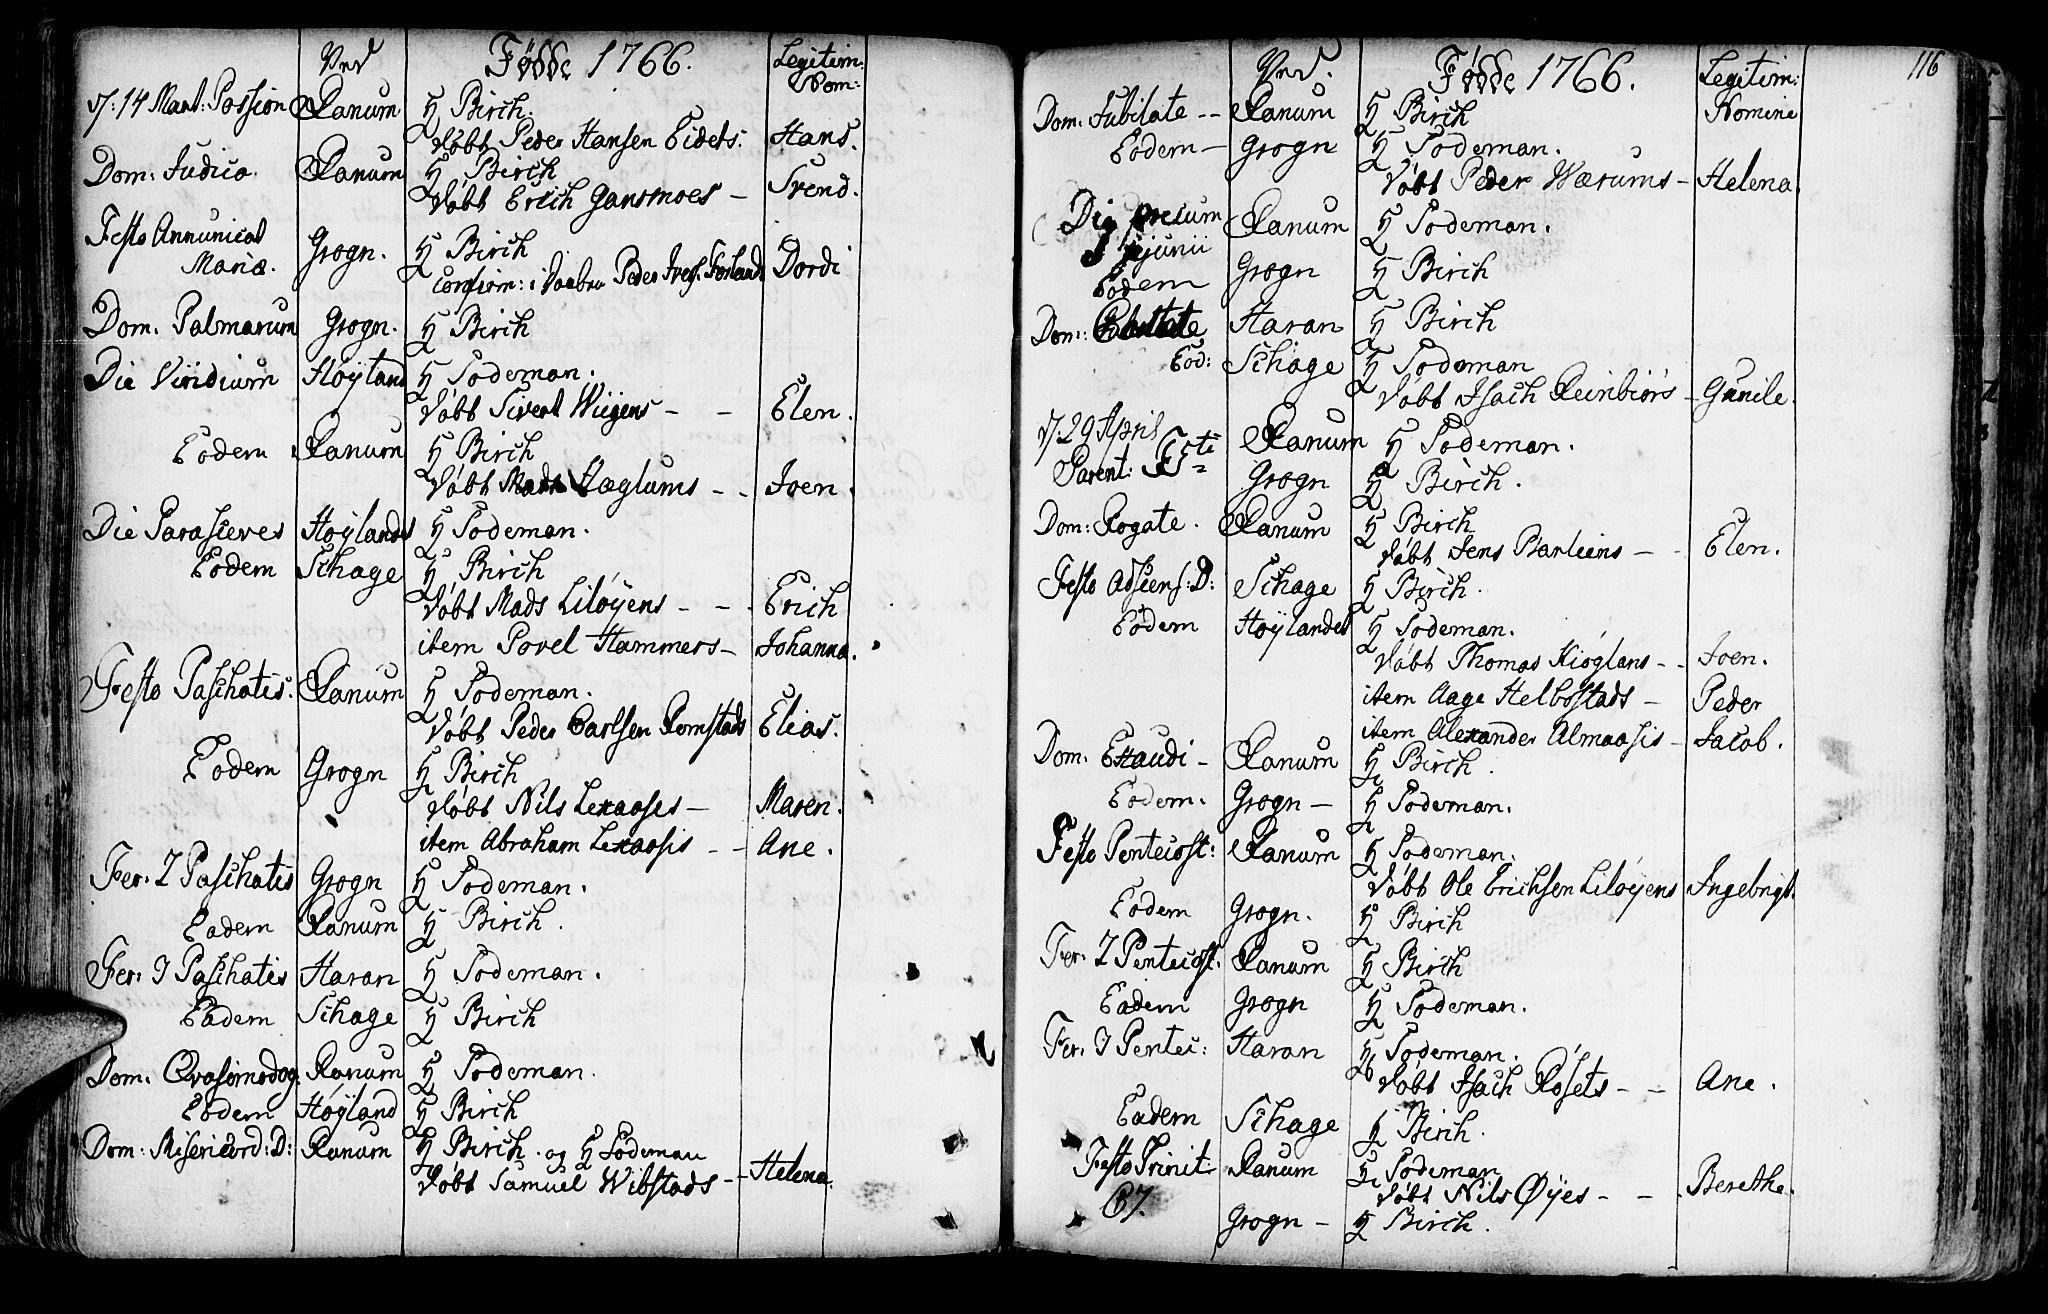 Ved Fødde 1766. Legitim:
Nom:
d: 14 Mart: Possion Ranum H Birch.
døbt Peder Hansen Eidets. Hans.
Dom: Judica. Ranum H Birch
døbt Erich Gansmoes - Svend.
Festo Annunicat Grogn. H Birch
Mariæ. confirm: i Daaben Peder Dordi
Dom: Palmarum Grogn. H Birch
Die Viridium Høyland H Sodeman.
døbt Sivert Wiigens - - Elen.
Eodem Ranum H Birch
døbt Mads Hæglums - - Joen.
Die Parasceves Høylandet H Sodeman.
Eodem Schage H Birch
døbt Mads Liløyens - - Erich
item Povel Hammers - Johanna.
Festo Paschatis. Ranum H Sodeman.
døbt Peder Carlsen Romstads Elias.
Eodem Grogn H Birch
døbt Nils Lexaases - Maren.
item Abraham Lexaasis - - Ane.
Fer: 2 Paschatis Grogn H Sodeman.
Eadem Ranum H Birch.
Fer: 3 Paschatis Haran H Sodeman.
Eadem Schage H Birch
Dom: Qvasimodog. Ranum H Sodeman.
Eodem Høyland H Birch
Dom: Misericord: D: Ranum H Birch. og H Sodeman
døbt Samuel Wibstads - - Helena.
116
Ved. Fødde 1766. Legitim:
Nomine
Dom: Jubilate - - Ranum H Birch
Eodem - Grogn H Sodeman.
døbt Peder Wærums - Helena.
Die precum Ranum H Sodeman.
jejunii
Eodem Grogn H Birch
Dom: Cantate Haran H Birch
Eod: Schage H Sodeman
døbt Isach Reinbiörs - Gunile.
d: 29 April Ranum H Sodeman.
Parent: Grogn H Birch.
Dom: Rogate. Ranum H Birch
døbt Jens Barliens - - Elen.
Festo Adscens: D: Schage H Birch.
Eodem Høylandet H Sodeman.
døbt Thomas Kiøglans - - Joen.
item Aage Helbostads - Peder
item Alexander Almaasis - Jacob.
Dom: Exaudi - Ranum H Birch.
Eodem. Grogn - H Sodeman.
Festo Pentecost: Ranum H Sodeman.
døbt Ole Erichsen Liløyens Ingebrigt.
Eodem Grogn. H Birch
Fer: 2 Pentecost. Ranum H Birch
Eadem Grogn H Sodeman.
Fer: 3 Pentec: Haran H Sodeman.
døbt Isach Rosets - - Ane.
Eadem Schage H Birch.
Festo Trinit Ranum H Sodeman
døbt Nils Øyes - - Berethe.
Grogn - H Birch.